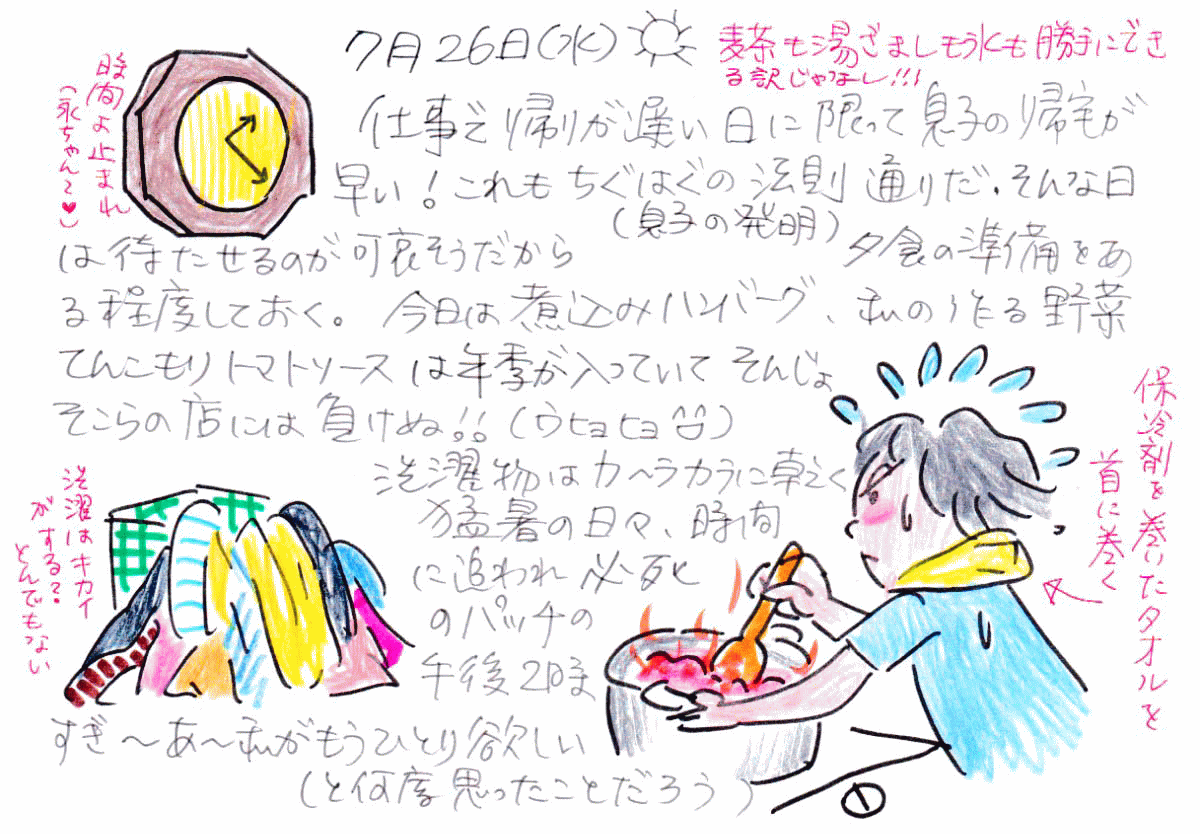 7月26日(水)
麦茶も湯ざましも氷も勝手にでき
る訳じゃなし!!!
時間よ止まれ
(永ちゃん〜♥)
仕事で帰りが遅い日に限って息子の帰宅が
早い!これもちぐはぐの法則通りだ。そんな日
(息子の発明)
は待たせるのが可哀そうだから 夕食の準備をあ
る程度しておく。今日は煮込みハンバーグ、私の作る野菜
てんこもりトマトソースは年季が入っていてそんじょ
そこらの店には負けぬ!!(ウヒョヒョ)
洗濯物はカ〜ラカラに乾く
猛暑の日々、時間
に追われ必死と
のパッチの
午後2時
すぎ〜あ〜私がもうひとり欲しい
(と何度思ったことだろう)
洗濯はキカイ
がする?
とんでもない
保冷剤を巻いたタオルを
首に巻く
①